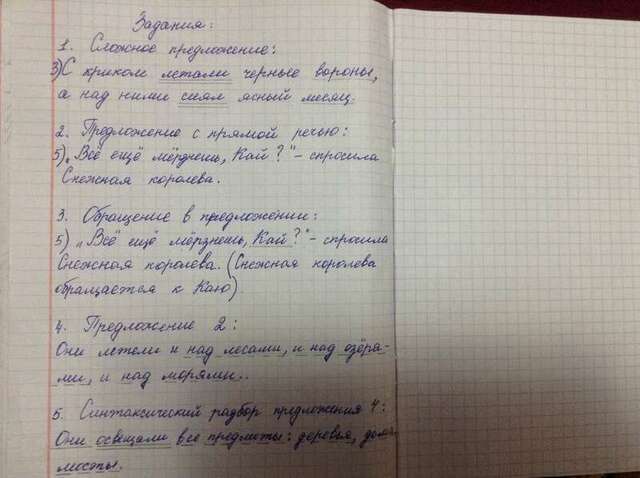 Задания:
1. Сложное предложение:
3) С криком летали черные вороны,
а над ними сиял ясный месяц.
2. Предложение с прямой речью:
5) „Всё ещё мёрзнешь, Кай?" – спросила
Снежная королева.
3. Обращение в предложении:
5) „Всё ещё мёрзнешь, Кай?" – спросила
Снежная королева. (Снежная королева
обращается к Каю).
4. Предложение 2:
Они летели и над лесами, и над озёра-
ми, и над морями..
5. Синтаксический разбор предложения 4:
Они освещали все предметы: деревья, дома
мосты.